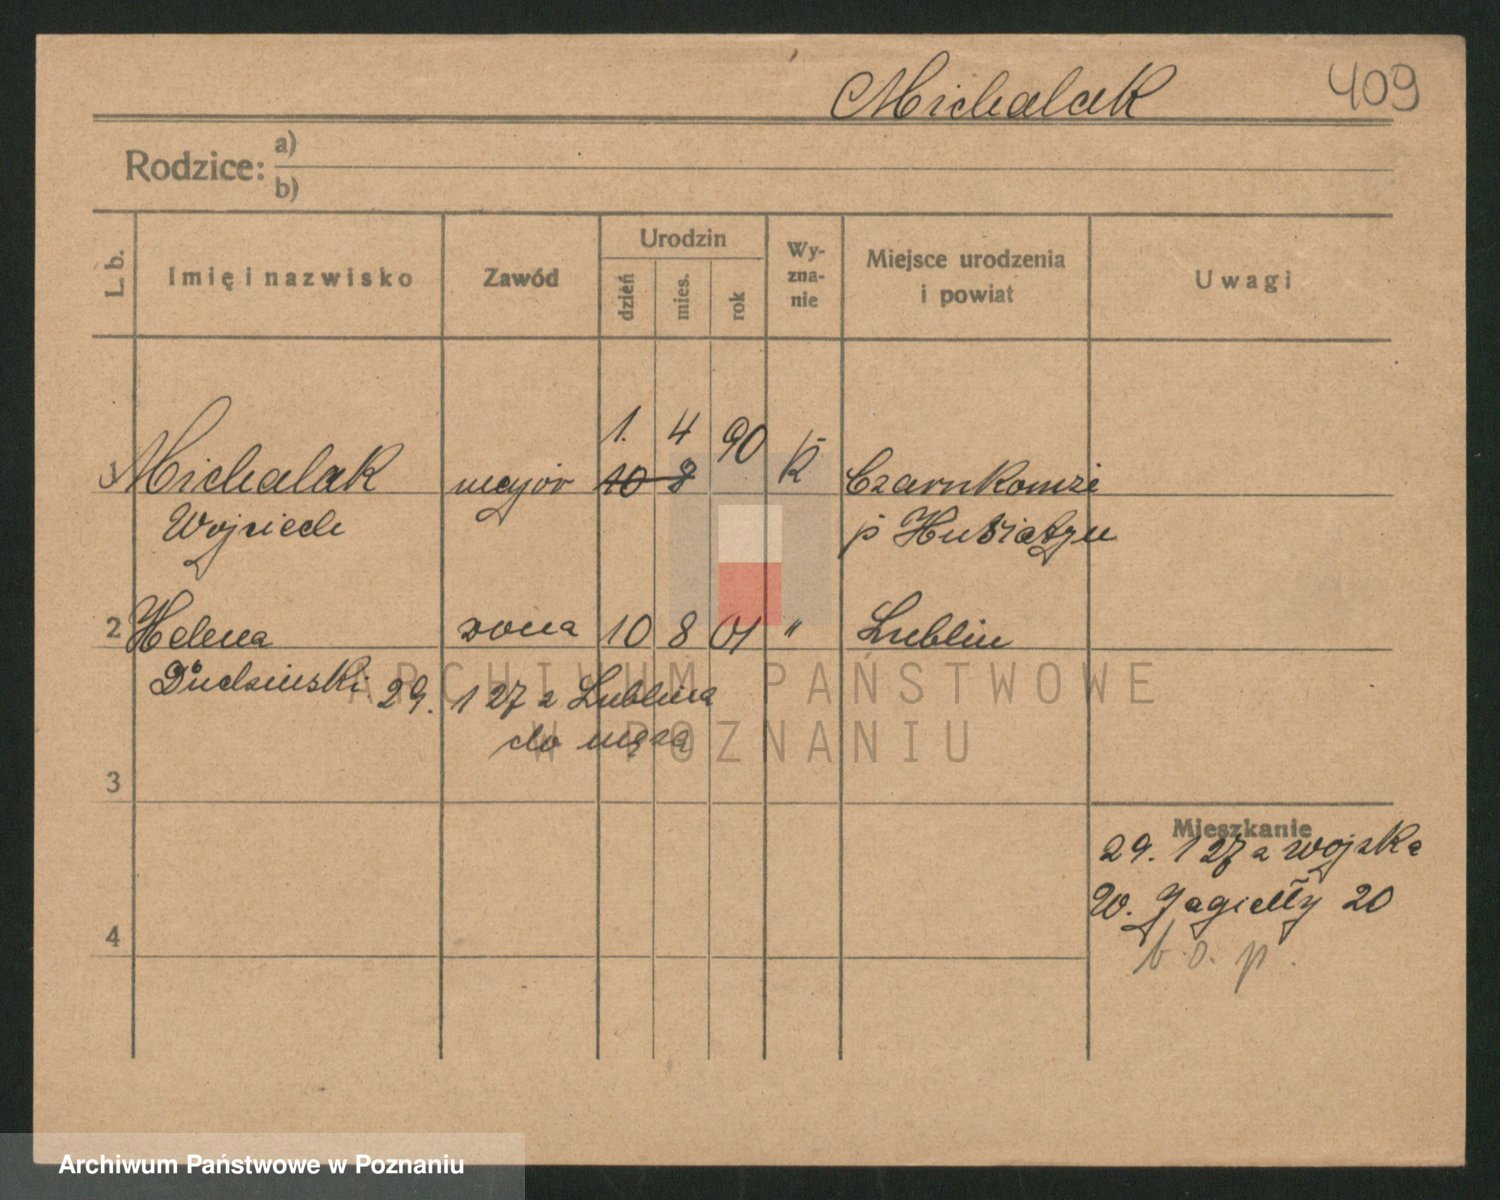 Michalak 409
Rodzice: a)
b)
L. b. Imię i nazwisko Zawód Urodzin dzień mies. rok Wy-zna-nie Miejsce urodzenia i powiat Uwagi
1. 4 90
1 Michalak major 10 8 K Czarnkonize
Wojciech p Husiatyn
2 Helena żona 10 8 01 " Lublin
Dudzinski 29. 1 27 z Lublina
do męża
ARCHIWUM PAŃSTWOWE
W POZNANIU
3
Mieszkanie
29. 1 27 z wojska
W. Jagiełły 20
4
b. o. p.
Archiwum Państwowe w Poznaniu